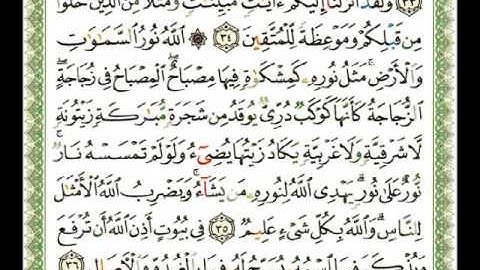 ٣٣ وَلَقَدْ أَنزَلْنَا إِلَيْكُمْ ءَايَٰتٍ مُّبَيِّنَٰتٍ وَمَثَلًا مِّنَ الَّذِينَ خَلَوْا
مِن قَبْلِكُمْ وَمَوْعِظَةً لِّلْمُتَّقِينَ ٣٤ ۞ اللَّهُ نُورُ السَّمَٰوَٰتِ
وَالْأَرْضِ ۚ مَثَلُ نُورِهِ كَمِشْكَوٰةٍ فِيهَا مِصْبَاحٌ ۖ الْمِصْبَاحُ فِي زُجَاجَةٍ ۖ
الزُّجَاجَةُ كَأَنَّهَا كَوْكَبٌ دُرِّيٌّ يُوقَدُ مِن شَجَرَةٍ مُّبَٰرَكَةٍ زَيْتُونَةٍ
لَّا شَرْقِيَّةٍ وَلَا غَرْبِيَّةٍ يَكَادُ زَيْتُهَا يُضِيءُ وَلَوْ لَمْ تَمْسَسْهُ نَارٌ ۚ
نُّورٌ عَلَىٰ نُورٍ ۗ يَهْدِي اللَّهُ لِنُورِهِ مَن يَشَاءُ ۚ وَيَضْرِبُ اللَّهُ الْأَمْثَٰلَ
لِلنَّاسِ ۗ وَاللَّهُ بِكُلِّ شَيْءٍ عَلِيمٌ ٣٥ فِي بُيُوتٍ أَذِنَ اللَّهُ أَن تُرْفَعَ
وَيُذْكَرَ فِيهَا اسْمُهُ يُسَبِّحُ لَهُ فِيهَا بِالْغُدُوِّ وَالْآصَالِ ٣٦